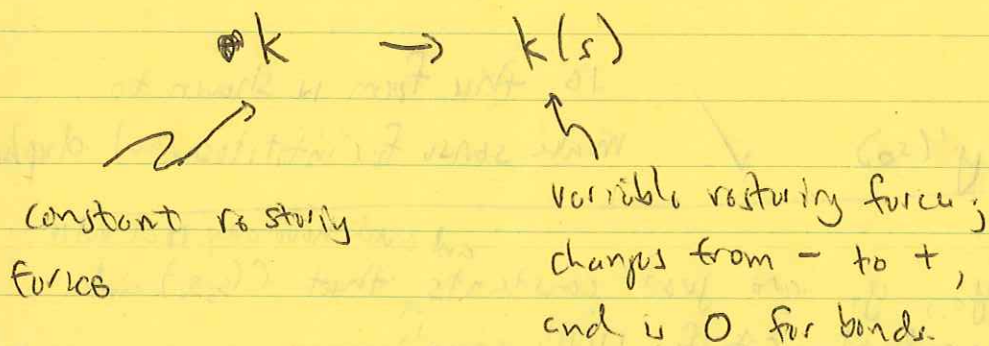 k → k(s)
constant restoring
force
variable restoring force;
changes from - to +,
and is 0 for bends.